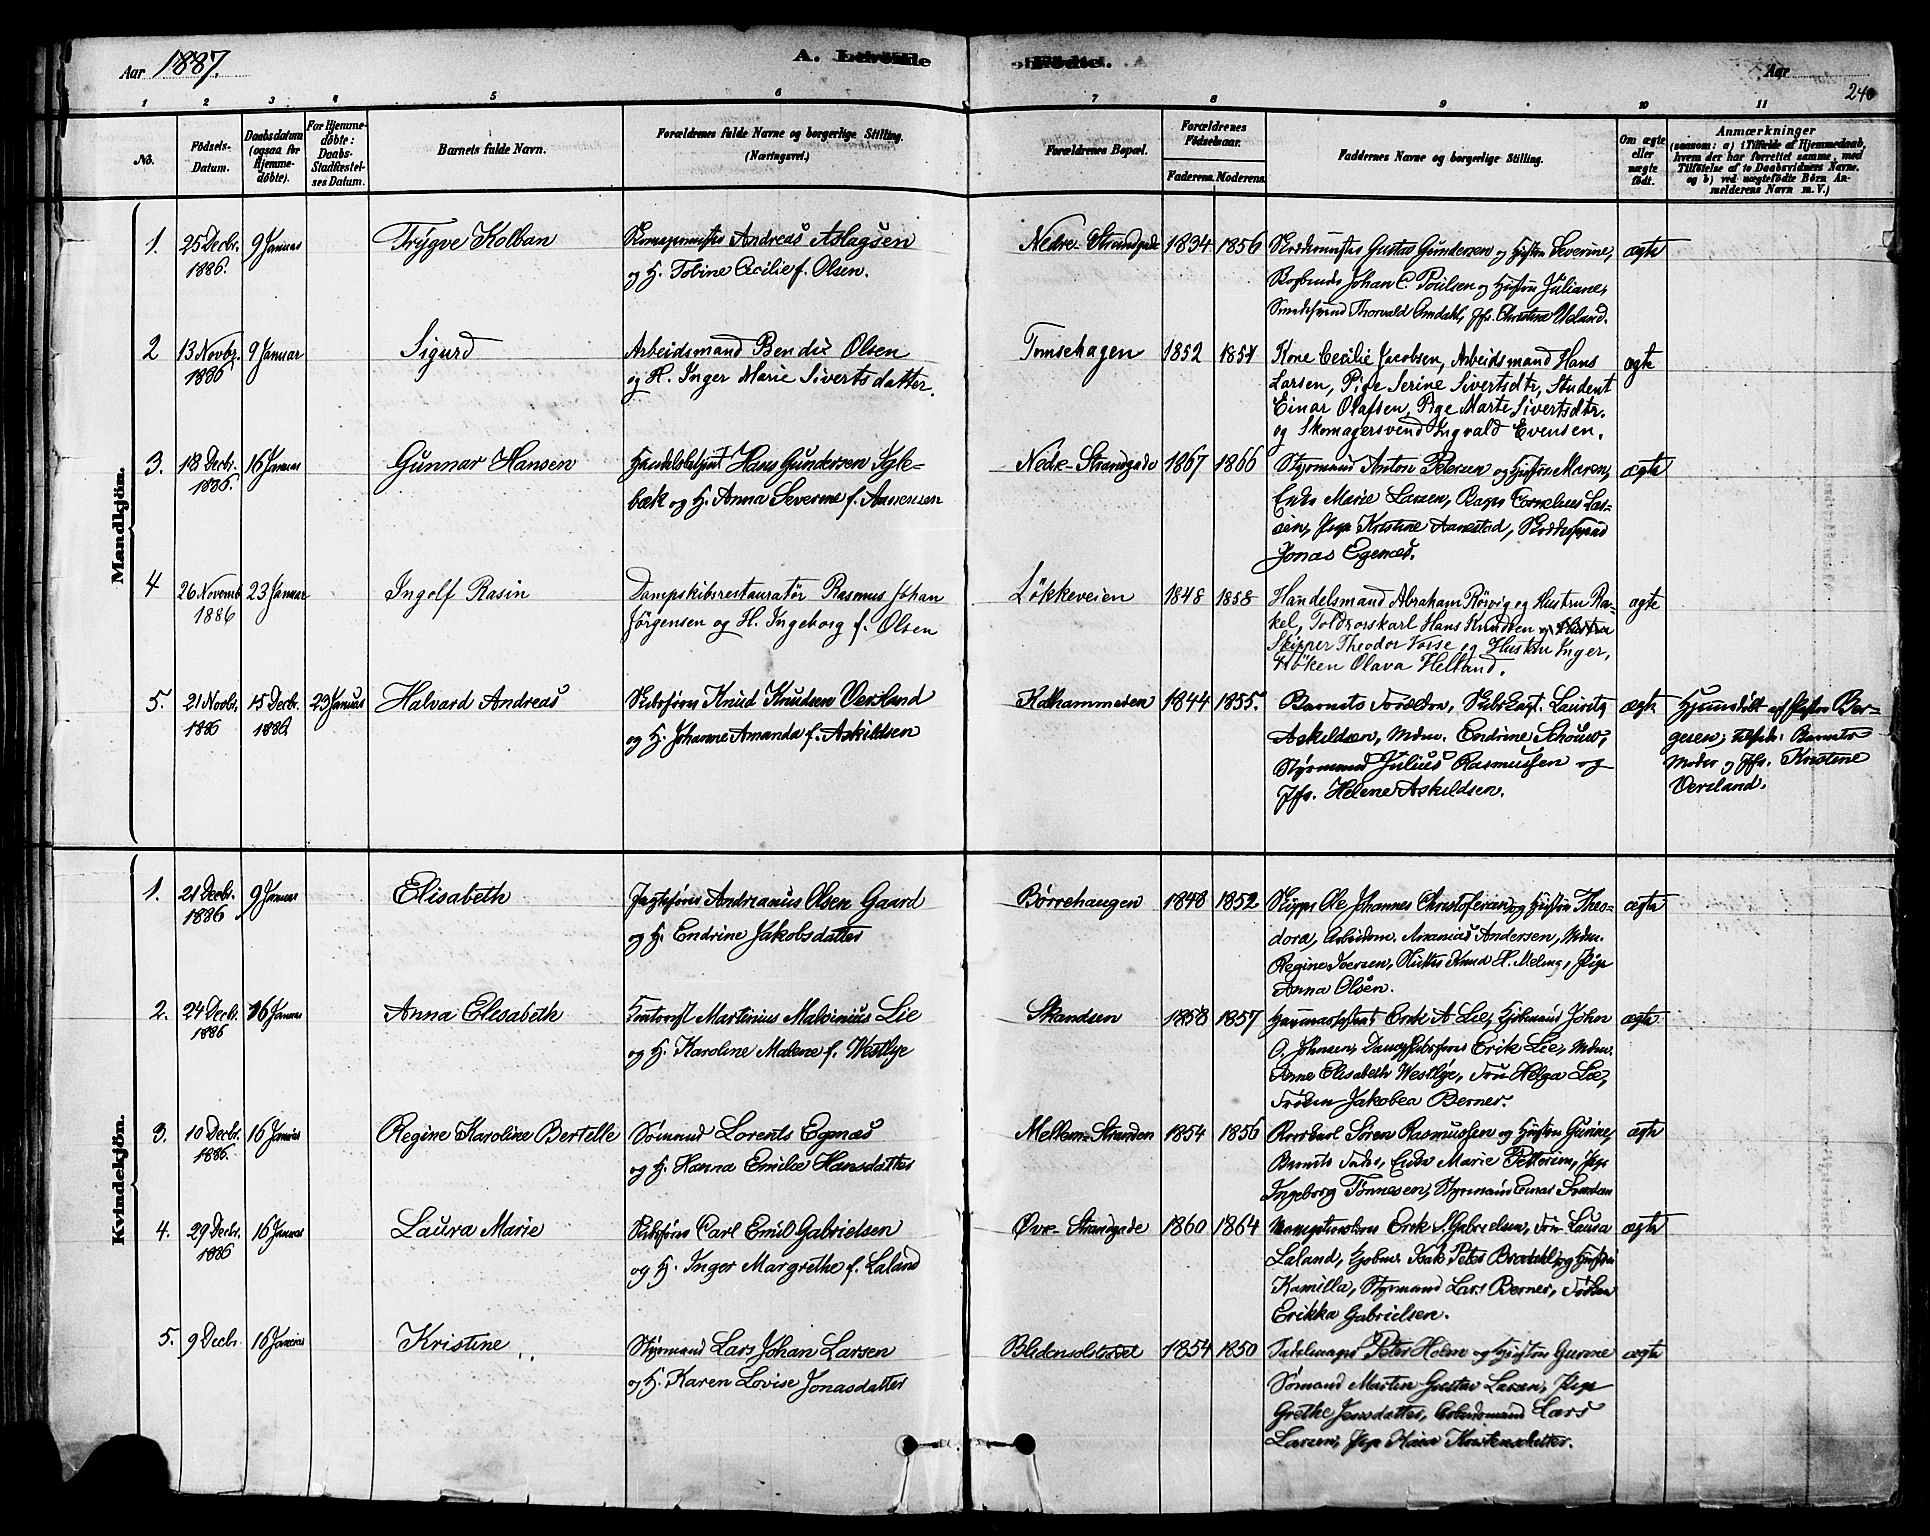 Aar 1887.
A. Levende
Fødte.
Aar
240
1 2 3 4 5 6 7 8 9 10 11
No.
Födsels-Datum.
Daabsdatum (ogsaa for Hjemme-döbte).
For Hjemme-döbte: Daabs-Stadfæstel-ses Datum.
Barnets fulde Navn.
Forældrenes fulde Navne og borgerlige Stilling. (Næringsvei.)
Forældrenes Bopæl.
Forældrenes Födselsaar.
Faderens. Moderens.
Faddernes Navne og borgerlige Stilling.
Om ægte eller uægte födt.
Anmærkninger
(saasom: a) i Tilfælde af Hjemmedaab, hvem der har forrettet samme, med Tilföielse af to Daabsvidners Navne. og b) ved uægtefödte Börn An-melderens Navn m. V.)
Mandkjön.
1. 25 Decbr. 1886. 9 Januar Trygve Kolban
Andreas Aslagsen
og H. Tobine Cecilie f. Olsen.
Nedre Strandgade 1834 1856
Gustav Gundersen og Hustru Severine,
Johan C. Poulsen og Hustru Juliane,
Thorvald Omdahl, Jfr. Christine Ueland.
ægte
2 13 Novbr. 1886 9 Januar Sigurd
Arbeidsmand Bendix Olsen
og H. Inger Marie Sivertsdatter.
Tomsehagen 1852 1857
Kone Cecilie Jacobsen, Arbeidsmand Hans
Larsen, Pige Serine Sivertsdtr, Student
Einar Olafsen, Pige Marte Sivertsdtr.
og Skomagersvend Ingvald Evensen.
ægte
3. 18 Decbr. 1886. 16 Januar Gunnar Hansen
Handelsbetjent Hans Gundersen Syle-
bæk og H. Anna Severine f. Aanensen
Nedre Strandgade 1867 1866
Styrmand Anton Petersen og Hustru Maren,
Enke Marie Larsen, Cornelius Lar-
sen, Pige Kristine Aanestad,
Jonas Egenæs.
ægte
4 26 Novemb 1886 23 Januar Ingolf Rasin
Dampskibsrestauratør Rasmus Johan
Jörgensen og H. Ingeborg f. Olsen
Lökkeveien 1848 1858
Handelsmand Abraham Rörvig og Hustru Ra-
kel, Toldrorskarl Hans Knudsen og Hustru
Skipper Theodor Vorse og Hustru Inger,
Fröken Olava Helland.
ægte
5. 21 Novbr. 1886 15 Decbr. 1886 23 Januar Halvard Andreas
Skibsfører Knud Knudsen Versland
og H. Johanne Amanda f. Askildsen
Kolhammeren 1844 1855.
Barnets Forældre, Lauritz
Askildsen, Mdm. Endrine Schouw,
Styrmand Julius Rasmussen og
Jfr. Helene Askildsen.
ægte
Hjemmedöbt af Pastor Ber-
gesen; Barnets
Moder og Jfr. Kristine
Versland.
Kvindekjön.
1. 21 Decbr. 1886 9 Januar Elisabeth
Jagtefører Andreanus Olsen Gaard
og H. Endrine Jakobsdatter
Børrehaugen 1848 1852
Skipper Ole Johannes Christofersen og Hustru Theo-
dora, Arbeidsm. Ananias Andersen, Mdm.
Regine Iversen, Knud H. Meling, Pige
Anna Olsen.
ægte
2. 24 Decbr. 1886 16 Januar Anna Elisabeth
Kontorist Martinius Malvinius Lie
og H. Karoline Malene f. Westlye
Skandsen 1858 1857
Erik A. Lie, Kjøbmand John
O. Johnsen, Dampskibsfører Erik Lie, Mdm.
Anne Elisabeth Westlye, Fru Helga Lie,
Frøken Jakobea Berner.
ægte
3. 10 Decbr. 1886. 16 Januar Regine Karoline Bertelle
Sømand Lorents Egenæs
og H. Hanna Emilie Hansdatter
Mellem Stranden 1854 1856
Søren Rasmussen og Hustru Gurine,
Barnets Fader, Enke Marie Pettersen, Pige
Ingeborg Tønnesen, Styrmand Einar
ægte
4. 29 Decbr. 1886 16 Januar Laura Marie
Skibsfører Carl Emil Gabrielsen
og H. Inger Margrethe f. Laland
Øvre Strandgade 1860 1864
Erik S. Gabrielsen, Fru Laura
Laland, Kjøbm. Isak Peter Bredahl og Hustru
Kamilla, Styrmand Lars Berner, Frøken
Erikka Gabrielsen.
ægte
5. 9 Decbr. 16 Januar Kristine
Styrmand Lars Johan Larsen
og H. Karen Lovise Jonasdatter
Bledensolstredet 1854 1850
Sadelmager Peter Holm og Hustru Gurine
Sømand Martin Gustav Larsen, Pige
Grethe Jensdatter, Arbeidsmand Lars
Larsen, Pige Kristensdatter.
ægte